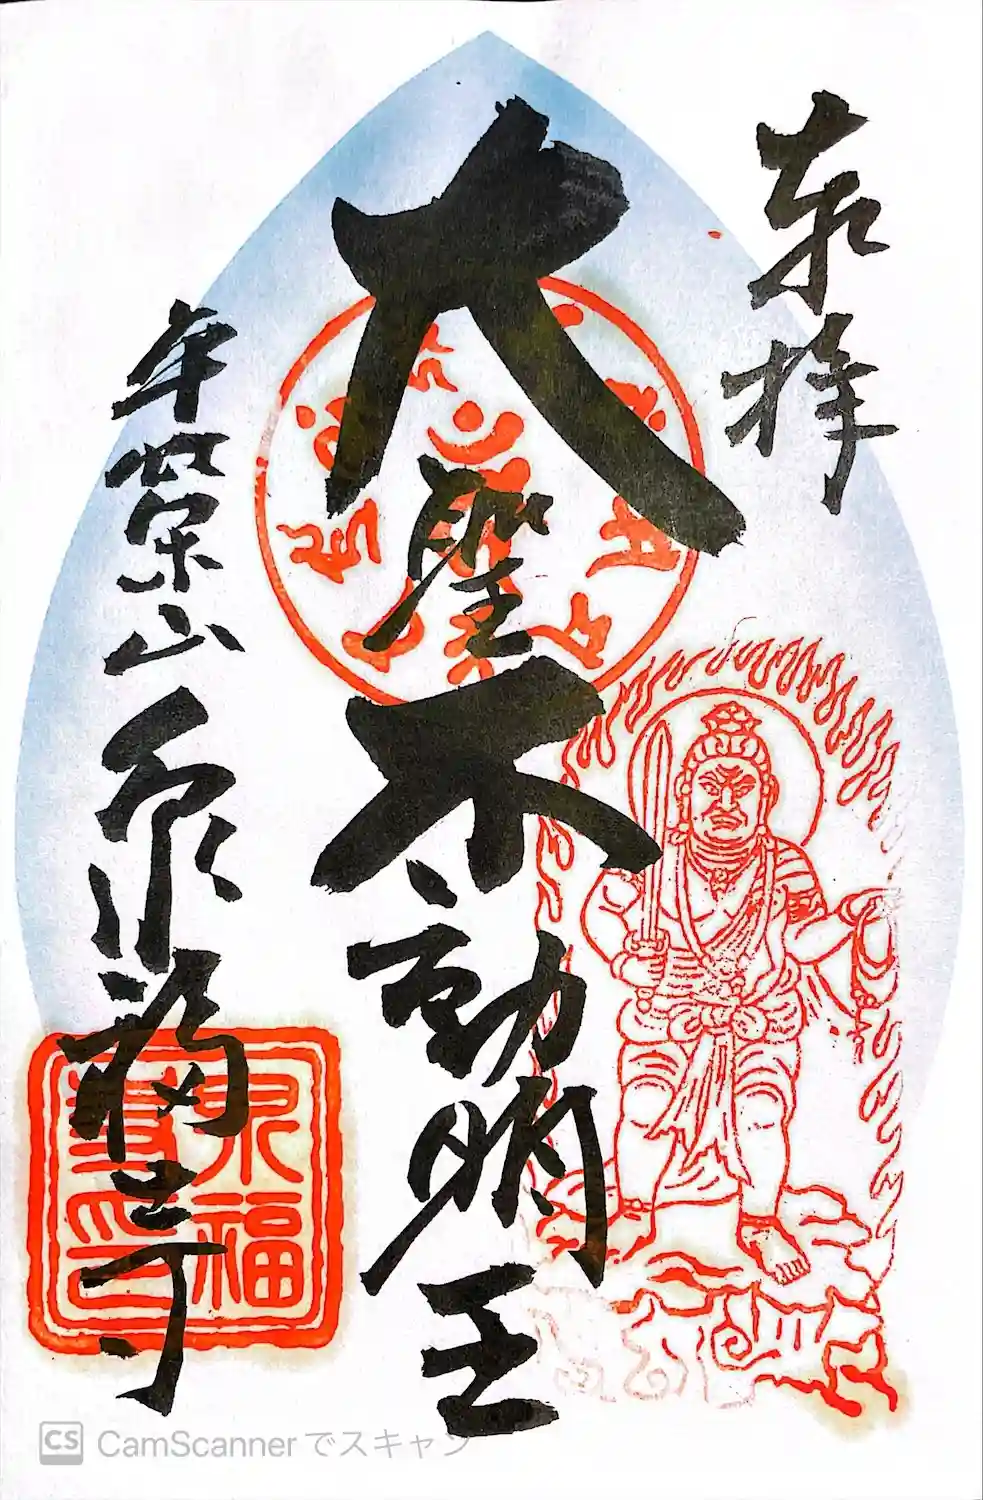 奉拝
大聖不動明王
山泉福寺
泉福
寺印
CamScannerでスキャン